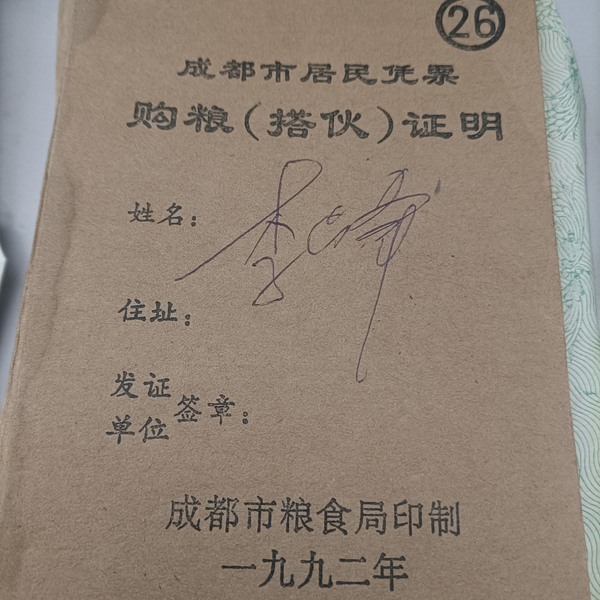 26
成都市居民凭票
购粮(搭伙)证明
姓名:李
住址:
发证单位签章:
成都市粮食局印制
一九九二年